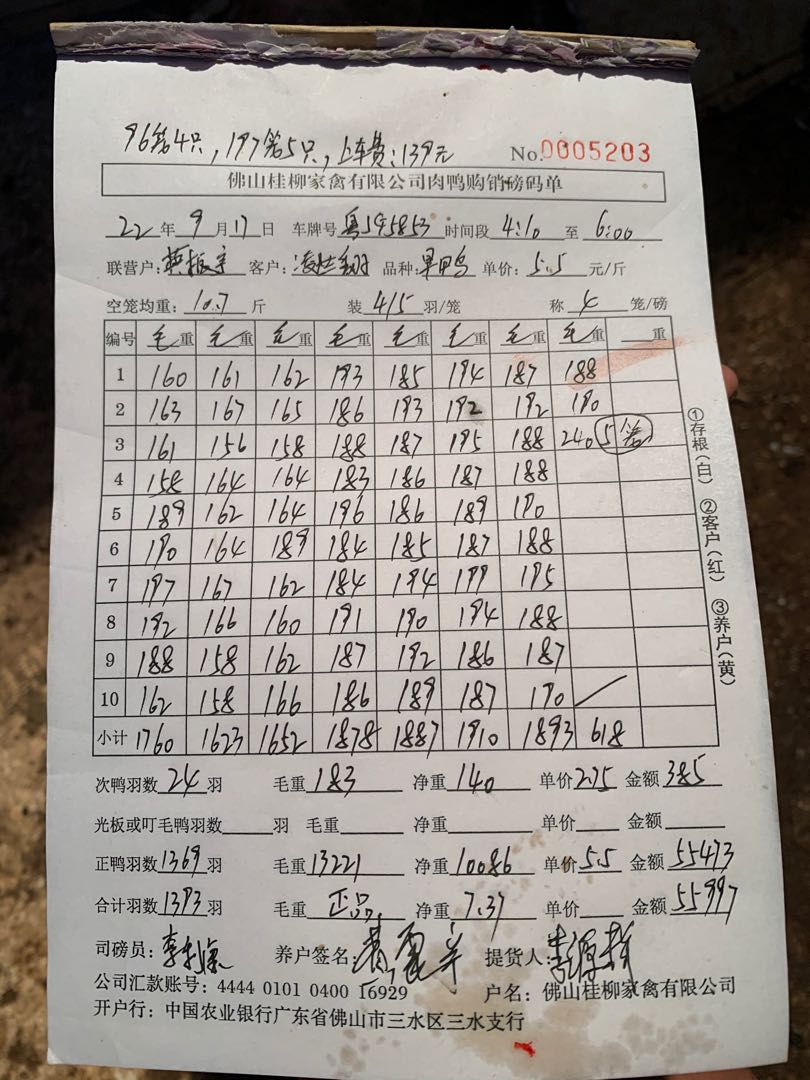 96笼4只，197笼5只，上车费：139元
No.0005203
佛山桂柳家禽有限公司肉鸭购销磅码单
22年9月17日 车牌号 粤J95853 时间段 4:10 至 6:00
联营户： 客户： 品种： 单价：5.5元/斤
空笼均重：10.7斤 装4/5羽/笼 称4笼/磅
编号 毛重 毛重 毛重 毛重 毛重 毛重 毛重 毛重 重
1 160 161 162 193 185 194 187 188
2 163 167 165 186 193 192 192 190
3 161 156 158 188 187 195 188 240 5笼
4 158 164 164 183 186 187 188
5 189 162 164 196 186 189 190
6 190 164 189 184 185 187 188
7 197 167 162 184 194 199 195
8 192 166 160 191 190 194 188
9 188 158 162 187 192 186 187
10 162 158 166 186 189 187 190
小计 1760 1623 1652 1878 1887 1910 1893 618
①存根（白） ②客户（红） ③养户（黄）
次鸭羽数24羽 毛重183 净重140 单价2.75 金额385
光板或叮毛鸭羽数 羽 毛重 净重 单价 金额
正鸭羽数1369羽 毛重13221 净重10086 单价5.5 金额55473
合计羽数1393羽 毛重 正品 净重7.37 单价 金额55997
司磅员： 养户签名： 提货人：
公司汇款账号：4444 0101 0400 16929 户名：佛山桂柳家禽有限公司
开户行：中国农业银行广东省佛山市三水区三水支行